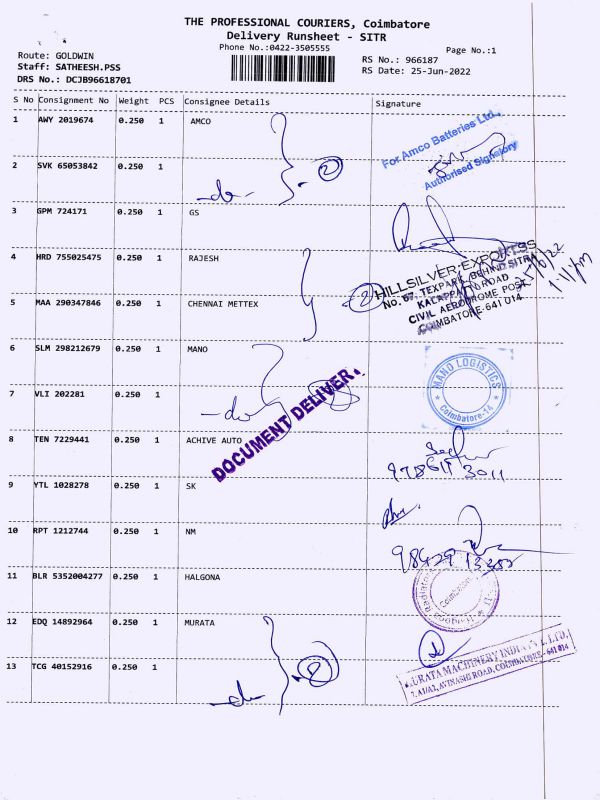 THE PROFESSIONAL COURIERS, Coimbatore
Delivery Runsheet - SITR
Phone No.:0422-3505555
Page No.:1
Route: GOLDWIN
Staff: SATHEESH.PSS
DRS No.: DCJB96618701
RS No.: 966187
RS Date: 25-Jun-2022
S No Consignment No Weight PCS Consignee Details Signature
1 AWY 2019674 0.250 1 AMCO
For Amco Batteries Ltd.,
Authorised Signatory
2 SVK 65053842 0.250 1
-do- 2
3 GPM 724171 0.250 1 GS
4 HRD 755025475 0.250 1 RAJESH
HILLSILVER EXPORTSS
NO. 67, TEXPARK, BEHIND SITRA
KALAPPATTI ROAD
CIVIL AERODROME POST
COIMBATORE-641 014
5 MAA 290347846 0.250 1 CHENNAI METTEX
2
6 SLM 298212679 0.250 1 MANO
MANO LOGISTICS
Coimbatore-14
7 VLI 202281 0.250 1
-do-
DOCUMENT DELIVER.
8 TEN 7229441 0.250 1 ACHIVE AUTO
9 YTL 1028278 0.250 1 SK
10 RPT 1212744 0.250 1 NM
11 BLR 5352004277 0.250 1 HALGONA
Coimbatore
12 EDQ 14892964 0.250 1 MURATA
13 TCG 40152916 0.250 1
-do- 2
MURATA MACHINERY INDIA P. LTD.
AVINASHI ROAD, COIMBATORE - 641 014